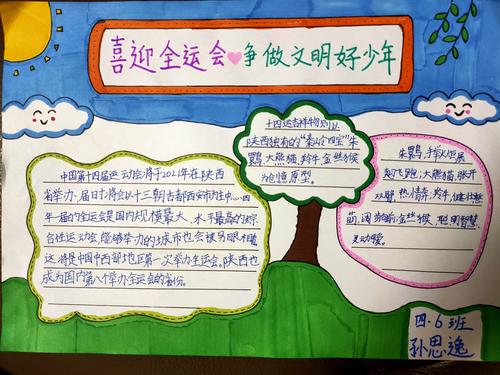 喜迎全运会 争做文明好少年
中国第十四届运动会将于2021年在陕西
省举办,届时将会以十三朝古都西安市为主中心.四
年一届的全运会是国内规模最大、水平最高的综
合性运动会,能够举办的城市也会被另眼相看
这将是中国中西部地区第一次举办全运会。陕西也
成为国内第八个举办全运会的省份。
十四运吉祥物则以
陕西独有的“秦岭四宝”朱
鹮、大熊猫、羚牛、金丝猴
为创意原型。
朱鹮,手持火炬展
翅飞跑,大熊猫,张开
双臂,热情奔,羚牛,健壮憨
萌,阔步向前,金丝猴,聪明智慧、
灵动可爱。
四·6班
孙思逸